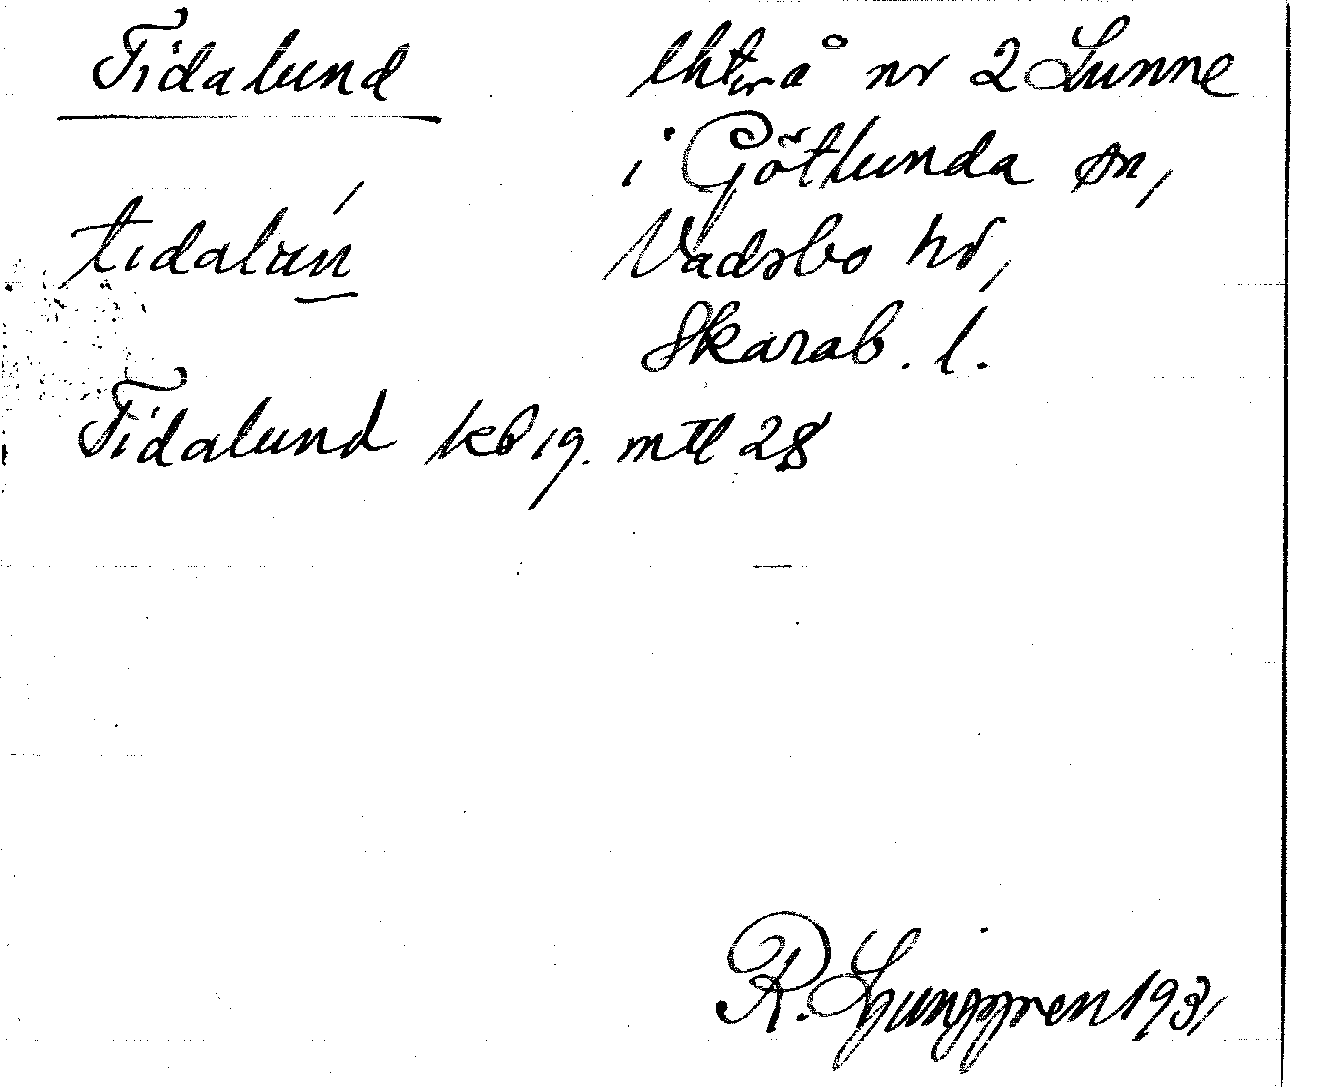 Tidalund
å nr 2 Lunne
i Götlunda sn,
tidalun
Vadsbo hd,
Skarab. l.
Tidalund kb 19. mtl 28
R. Ljunggren 1931